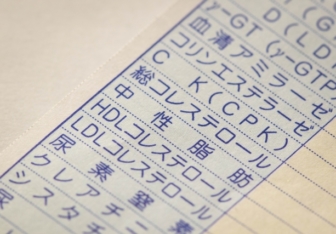 D(LD
γ-GT(γ-GTP
血清アミラーゼ
コリンエステラーゼ
CK(CPK)
総コレステロール
中性脂肪
HDLコレステロール
LDLコレステロール
尿素窒素
クレアチニ
シスタチ
尿